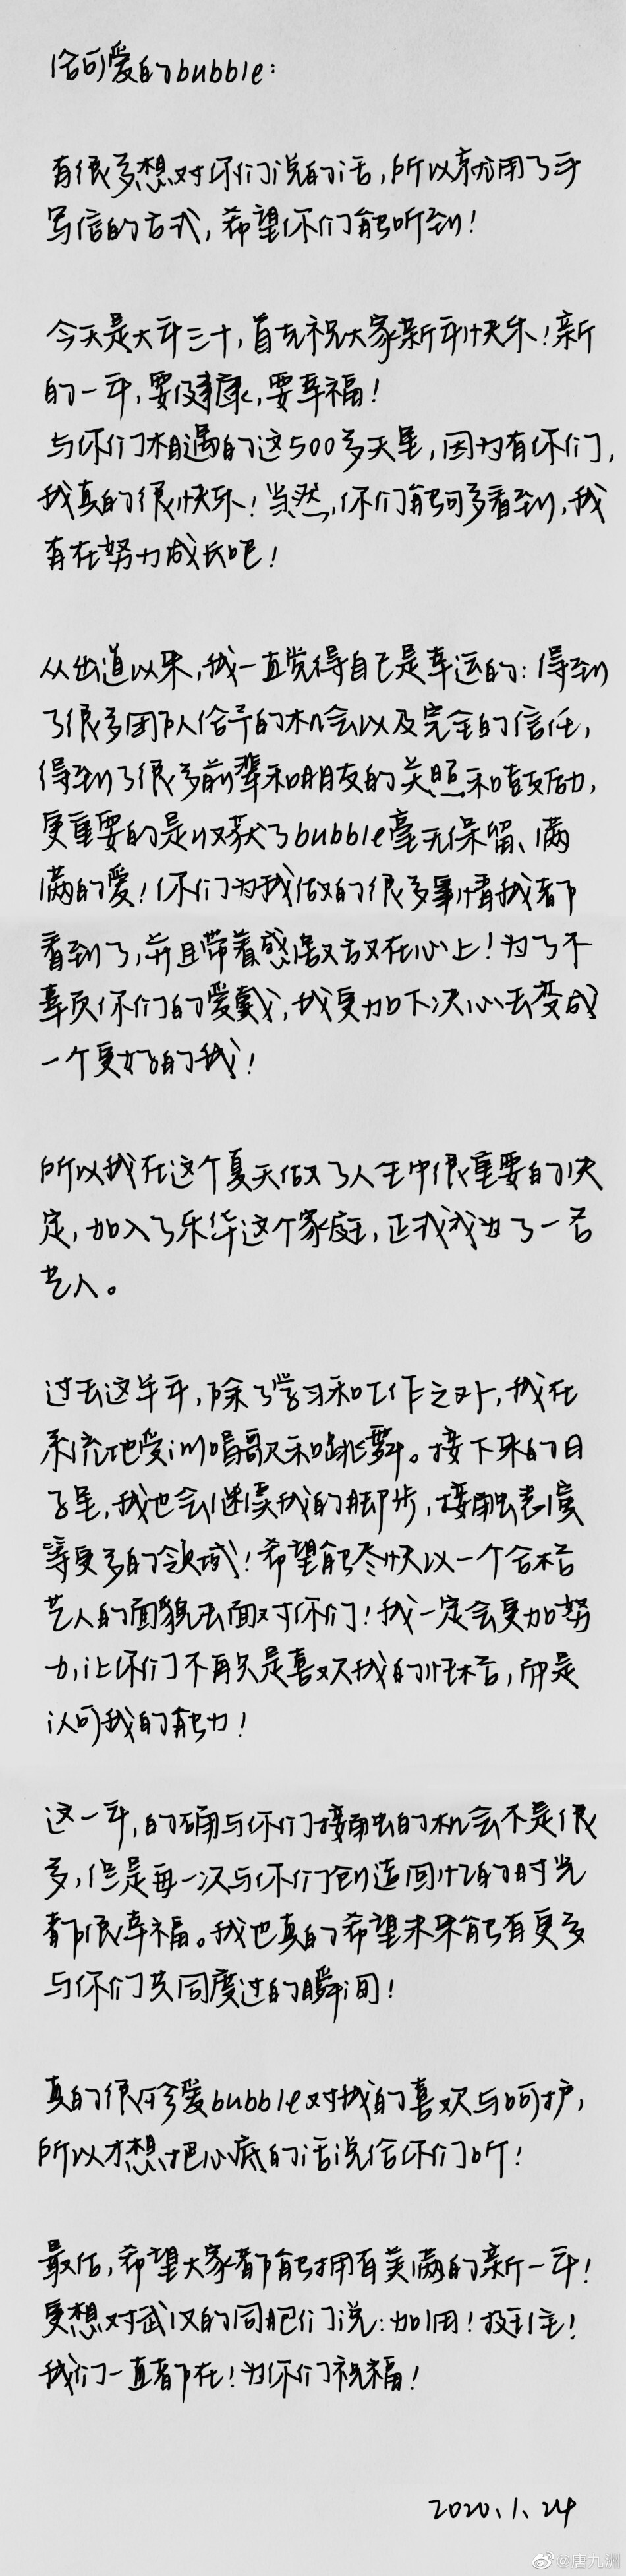 给可爱的bubble:
有很多想对你们说的话,所以就用了手
写信的方式,希望你们能听到!
今天是大年三十,首先祝大家新年快乐!新
的一年,要健康,要幸福!
与你们相遇的这500多天里,因为有你们,
我真的很快乐!当然,你们能够看到,我
有在努力成长吧!
从出道以来,我一直觉得自己是幸运的:得到
了很多团队给予的机会以及完全的信任,
得到了很多前辈和朋友的关照和鼓励,
更重要的是收获了bubble毫无保留、满
满的爱!你们为我做的很多事情我都
看到了,并且带着感激放在心上!为了不
辜负你们的爱戴,我更加下决心去变成
一个更好的我!
所以我在这个夏天做了人生中很重要的决
定,加入了乐华这个家庭,正式成为了一名
艺人。
过去这半年,除了学习和工作之外,我在
系统地受训唱歌和跳舞。接下来的日
子里,我也会继续我的脚步,接触表演
等更多的领域!希望能尽快以一个合格
艺人的面貌去面对你们!我一定会更加努
力,让你们不再只是喜欢我的性格,而是
认可我的能力!
这一年,的确与你们接触的机会不是很
多,但是每一次与你们创造回忆的时光
都很幸福。我也真的希望未来能有更多
与你们共同度过的瞬间!
真的很珍爱bubble对我的喜欢与呵护,
所以才想把心底的话说给你们听!
最后,希望大家都能拥有美满的新一年!
更想对武汉的同胞们说:加油!挺住!
我们一直都在!为你们祝福!
2020.1.24
@唐九洲